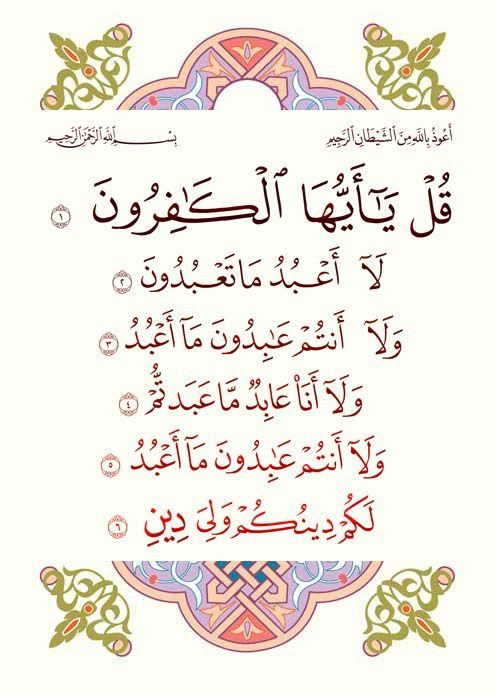 أَعُوذُ بِاللَّهِ مِنَ ٱلشَّيْطَانِ ٱلرَّجِيمِ بِسْمِ ٱللَّهِ ٱلرَّحْمَٰنِ ٱلرَّحِيمِ
قُلْ يَٰٓأَيُّهَا ٱلْكَٰفِرُونَ ١
لَآ أَعْبُدُ مَا تَعْبُدُونَ ٢
وَلَآ أَنتُمْ عَٰبِدُونَ مَآ أَعْبُدُ ٣
وَلَآ أَنَا۠ عَابِدٌ مَّا عَبَدتُّمْ ٤
وَلَآ أَنتُمْ عَٰبِدُونَ مَآ أَعْبُدُ ٥
لَكُمْ دِينُكُمْ وَلِىَ دِينِ ٦